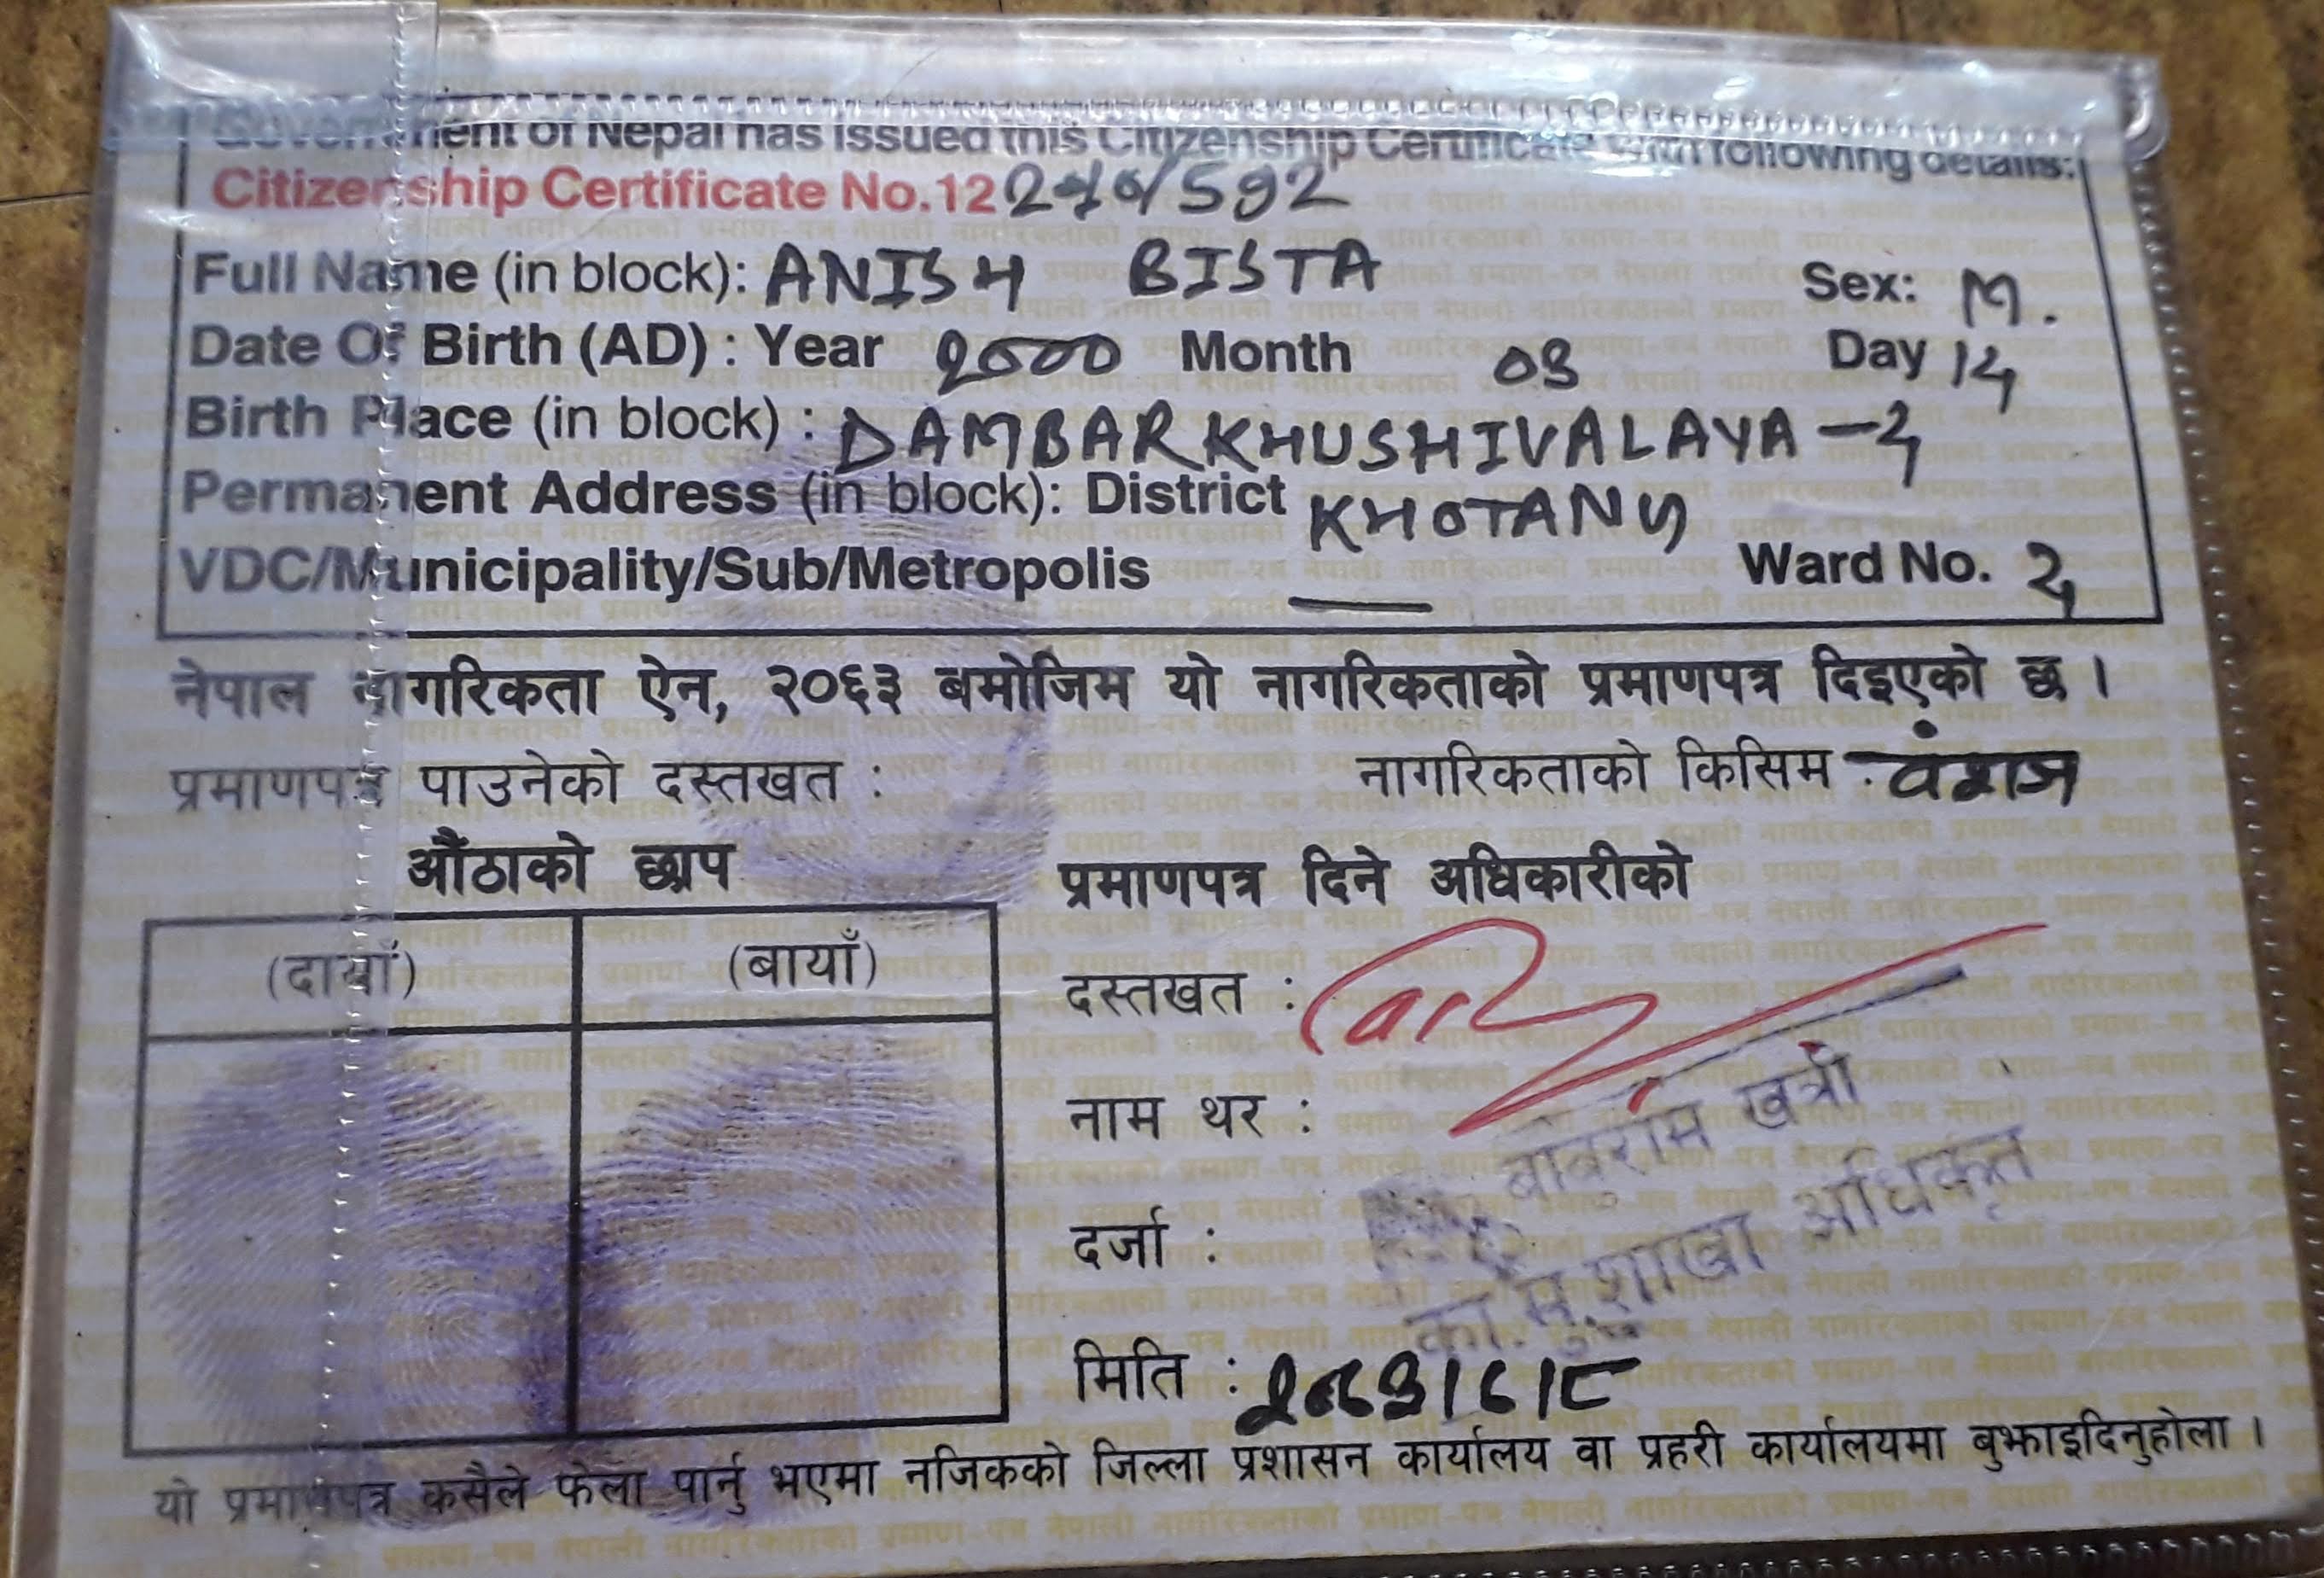 Government of Nepal has issued this Citizenship Certificate with following details:
Citizenship Certificate No.12
Full Name (in block): ANISH BISTA Sex: M.
Date Of Birth (AD) : Year 2000 Month 03 Day 14
Birth Place (in block) : DAMBARKHUSHIVALAYA - 2
Permanent Address (in block): District KHOTANG
VDC/Municipality/Sub/Metropolis — Ward No. 2
नेपाल नागरिकता ऐन, २०६३ बमोजिम यो नागरिकताको प्रमाणपत्र दिइएको छ ।
प्रमाणपत्र पाउनेको दस्तखत : नागरिकताको किसिम : वंशज
औंठाको छाप
(दायाँ) (बायाँ)
प्रमाणपत्र दिने अधिकारीको
दस्तखत :
नाम थर : बाबुराम खत्री
दर्जा : का.मु. शाखा अधिकृत
मिति :
यो प्रमाणपत्र कसैले फेला पार्नु भएमा नजिकको जिल्ला प्रशासन कार्यालय वा प्रहरी कार्यालयमा बुझाइदिनुहोला ।